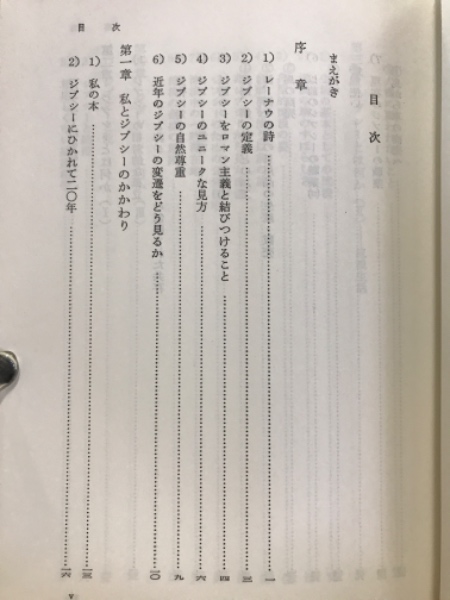 目次
目次
まえがき
序章
1) レーナウの詩……一
2) ジプシーの定義……三
3) ジプシーをロマン主義と結びつけること……四
4) ジプシーのユニークな見方……六
5) ジプシーの自然尊重……九
6) 近年のジプシーの変遷をどう見るか……一〇
第一章 私とジプシーのかかわり
1) 私の本……一三
2) ジプシーにひかれて二〇年……一六
v